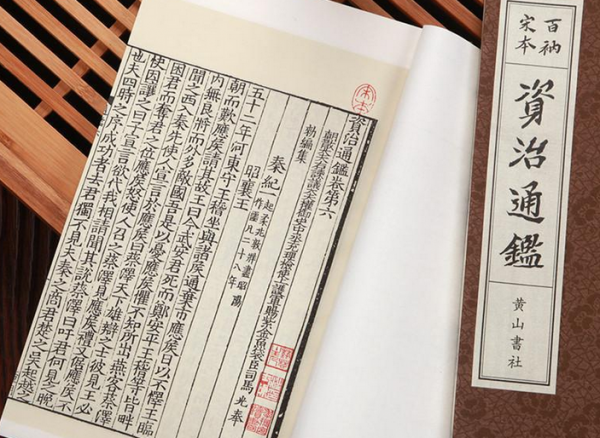 百衲
宋本
資治通鑑
黄山書社
宋本
資治通鑑卷第六
朝散大夫諫議大夫權御史中丞充理檢使上護軍賜紫金魚袋臣司馬光奉
勑編集
秦紀 起柔兆敦牂盡昭陽
作噩凡二十八年
昭襄王
五十二年河東守王稽坐與諸侯通棄市應侯日以不懌王臨
朝而歎應侯請其故王曰今武安君死而鄭安平王稽等皆畔
内無良將而外多敵國吾是以憂應侯懼不知所出燕客蔡澤
聞之西入秦先使人宣言於應侯曰蔡澤天下雄辯之士彼見王必
困君而奪君之位應侯怒使人召之蔡澤見應侯禮又倨應侯不
快因讓之曰子宣言欲代我相請聞其説蔡澤曰吁君何見之晚
也夫四時之序成功者去君獨不見夫秦之商君楚之吳起越之